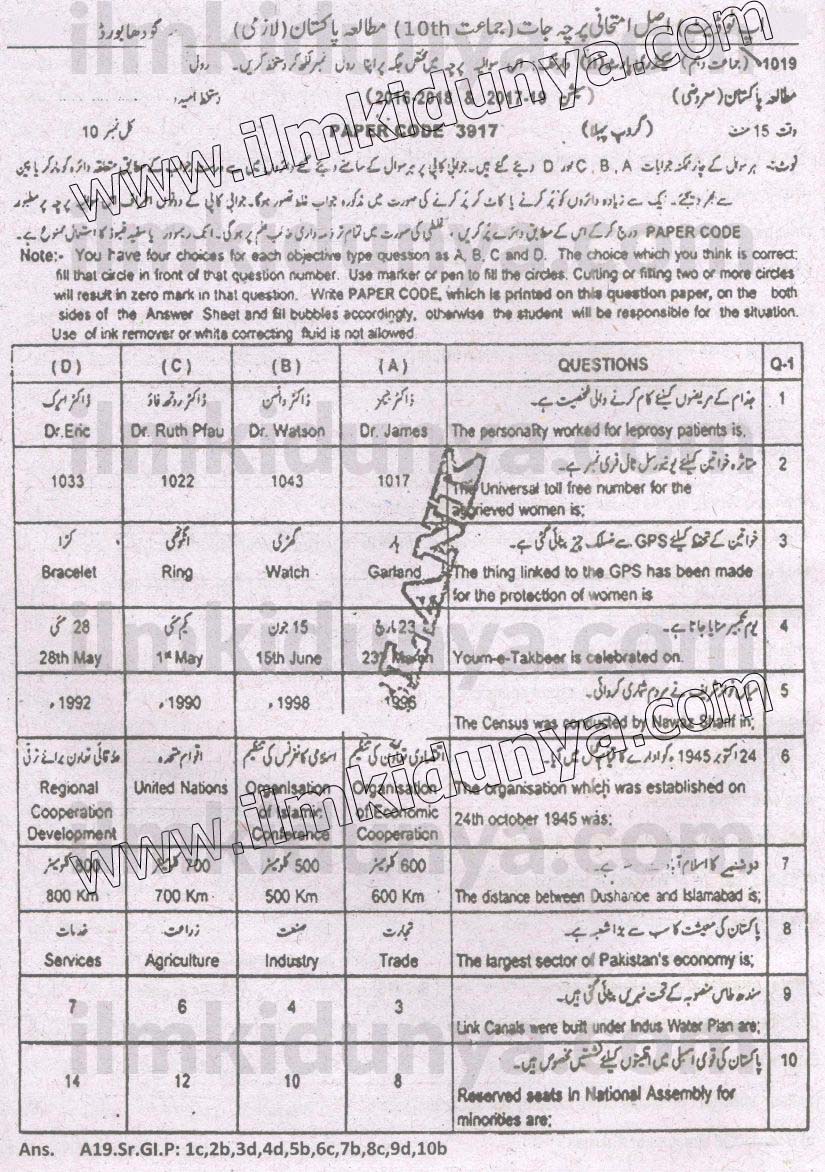 اصل امتحانی پرچہ جات (جماعت 10th) مطالعہ پاکستان (لازمی) سرگودھا بورڈ
1019 (جماعت دہم) پرچہ میں مختص جگہ پر اپنا رول نمبر لکھ کر دستخط کریں۔ رول
مطالعہ پاکستان (معروضی) (سیشن 2016-2018 & 2017-19) دستخط امیدوار
وقت 15 منٹ (گروپ پہلا) PAPER CODE 3917 کل نمبر 10
نوٹ: ہر سوال کے چار ممکنہ جوابات C, B, A اور D دیے گئے ہیں۔ جوابی کاپی پر ہر سوال کے سامنے دیے گئے دائروں میں سے متعلقہ دائرہ کو مارکر یا پین
سے بھر دیجئے۔ ایک سے زیادہ دائروں کو پُر کرنے یا کاٹ کر پُر کرنے کی صورت میں مذکورہ جواب غلط تصور ہوگا۔ جوابی کاپی کے دونوں پرچہ پر مطبوعہ
PAPER CODE درج کر کے اس کے مطابق دائرے پُر کریں، غلطی کی صورت میں تمام تر ذمہ داری طالب علم پر ہوگی۔ انک ریموور یا سفید فلیوڈ کا استعمال ممنوع ہے۔
Note:- You have four choices for each objective type quesson as A, B, C and D. The choice which you think is correct;
fill that circle in front of that question number. Use marker or pen to fill the circles. Cutting or filling two or more circles
will result in zero mark in that question. Write PAPER CODE, which is printed on this question paper, on the both
sides of the Answer Sheet and fill bubbles accordingly, otherwise the student will be responsible for the situation.
Use of ink remover or white correcting fluid is not allowed.
(D) (C) (B) (A) QUESTIONS Q-1
ڈاکٹر ایرک ڈاکٹر روتھ فاؤ ڈاکٹر واٹسن ڈاکٹر جیمز جذام کے مریضوں کیلئے کام کرنے والی شخصیت ہے۔ 1
Dr.Eric Dr. Ruth Pfau Dr. Watson Dr. James The personality worked for leprosy patients is,
متاثرہ خواتین کیلئے یونیورسل ٹال فری نمبر ہے۔ 2
1033 1022 1043 1017 The Universal toll free number for the
aggrieved women is;
کڑا انگوٹھی گھڑی ہار خواتین کے تحفظ کیلئے GPS سے منسلک چیز بنائی گئی ہے۔ 3
Bracelet Ring Watch Garland The thing linked to the GPS has been made
for the protection of women is
28 مئی یکم مئی 15 جون 23 مارچ یوم تکبیر منایا جاتا ہے۔ 4
28th May 1st May 15th June 23rd March Youm-e-Takbeer is celebrated on.
میاں نواز شریف نے مردم شماری کروائی۔ 5
1992ء 1990ء 1998ء 1996 The Census was conducted by Nawaz Sharif in;
علاقائی تعاون برائے ترقی اقوام متحدہ اسلامی کانفرنس کی تنظیم اقتصادی تعاون کی تنظیم 24 اکتوبر 1945ء کو ادارے کا قیام عمل میں آیا۔ 6
Regional United Nations Organisation Organisation The organisation which was established on
Cooperation of Islamic of Economic 24th october 1945 was:
Development Conference Cooperation
800 کلومیٹر 700 کلومیٹر 500 کلومیٹر 600 کلومیٹر دوشنبے کا اسلام آباد سے ہے۔ 7
800 Km 700 Km 500 Km 600 Km The distance between Dushanoe and Islamabad is;
خدمات زراعت صنعت تجارت پاکستان کی معیشت کا سب سے بڑا شعبہ ہے۔ 8
Services Agriculture Industry Trade The largest sector of Pakistan's economy is;
سندھ طاس منصوبہ کے تحت نہریں بنائی گئی ہیں۔ 9
7 6 4 3 Link Canals were built under Indus Water Plan are;
پاکستان کی قومی اسمبلی میں اقلیتوں کیلئے نشستیں مخصوص ہیں۔ 10
14 12 10 8 Reserved seats in National Assembly for
minorities are;
Ans. A19.Sr.GI.P: 1c,2b,3d,4d,5b,6c,7b,8c,9d,10b
www.ilmkidunya.com
www.ilmkidunya.com
ilmkidunya.com